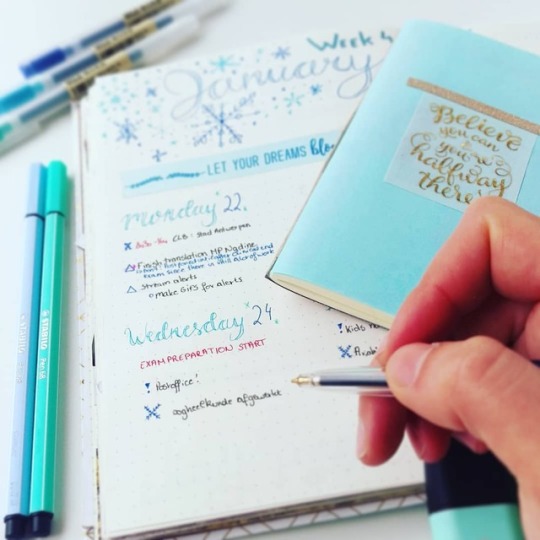 Week 4
January
LET YOUR DREAMS blo
Monday 22.
CLB: stad Antwerpen
Finish translation MP Nadine
Stream alerts
Make GIFS for alerts
Wednesday 24.
EXAM PREPARATION START
Postoffice!
oogheelkunde afgewerkt
Kids
Believe
you can
&
you're
halfway
there!
STABILO
STABILO